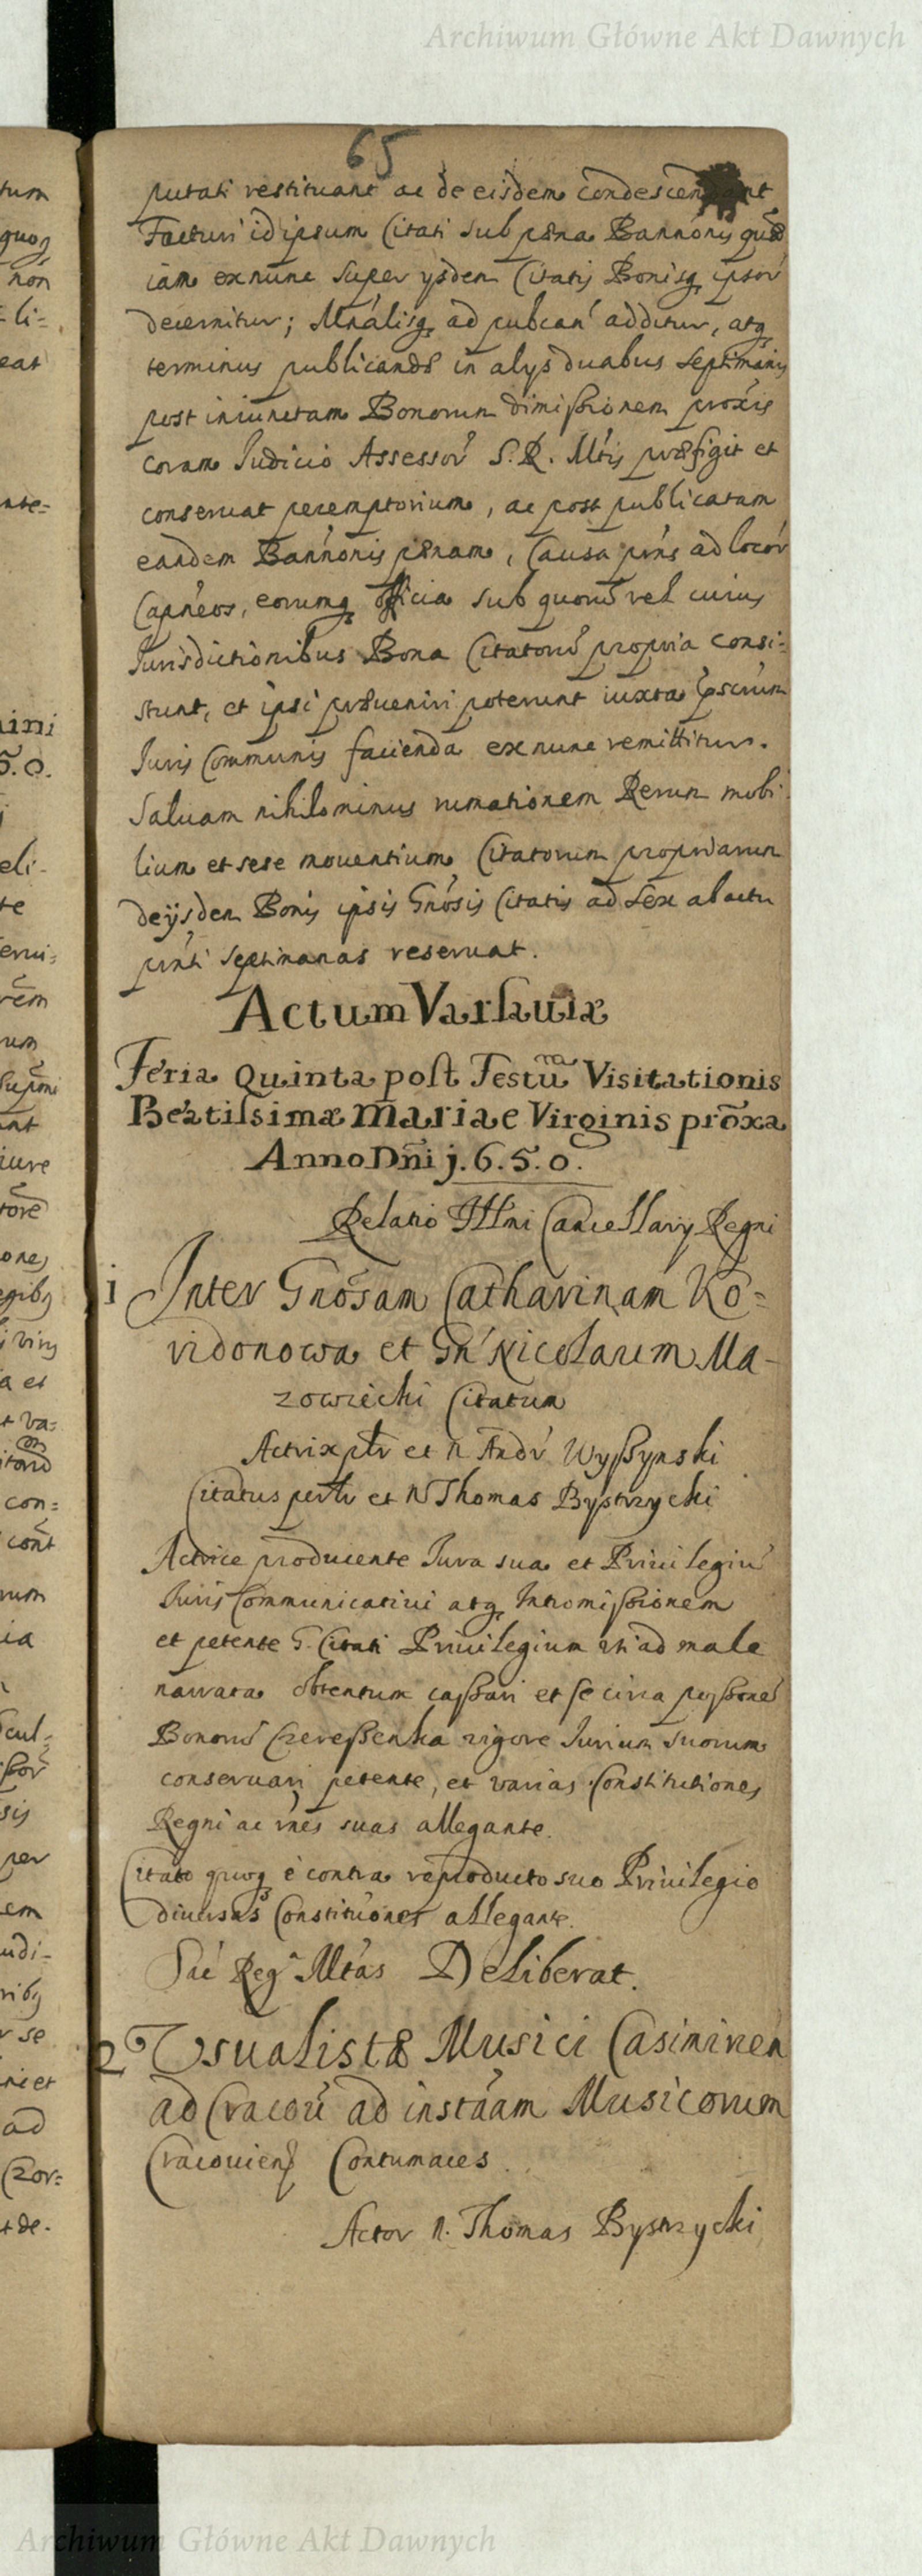 Archiwum Główne Akt Dawnych
65
putati restituant ac de eisdem condescendant
Facturi id ipsum Citati sub pæna Bannonis quæ
iam ex nunc super ijsdem Citatis Bonisq ipsor
decernitur; Mnálisq ad pubcan addctur, atq
terminus publicandæ in alijs duabus Septimanis
post iniunctam Bonorum dimissionem proxis
coram Iudicio Assessor S. R. Mtis præfigit et
conseruat peremptorium, ac post publicatam
eandem Bannonis pænam, Causa pns ad locor
Capneos, eorumq officia sub quorū vel cuius
Iurisdictionibus Bona Citatorū propria consi=
stunt, et ipsi præueniri poterunt iuxta pscrium
Iuris Communis facienda ex nunc remittitur.
Saluam nihilominus rumationem Rerum mobi
lium et sese mouentium Citatorum propriarum
de ijsdem Bonis ipsis Gnosis Citatis ad Sex ab actu
pnti septimanas reseruat.
Actum Varsauiæ
Feria Quinta post Festū Visitationis
Beatissimæ Mariae Virginis proxa
Anno Dni j.6.5.0.
Relatio Illmi Cancellarij Regni
1 Inter Gnosam Catharinam Ko=
ridonowa et Gn Nicolaum Ma-
zowiecki Citatum
Actrix ptr et N Andr Wyssynski
Citatus per tr et N Thomas Bystrzycki
Actrice producente Iura sua et Priuilegiū
Iuris Communicatiui atq Intromissionem
et petente G. Citati Priuilegium uti ad male
narrata obtentum cassari et se circa possones
Bonorū Czeressenka rigore Iurium suorum
conseruari petente, et varias Constitutiones
Regni ac rnes suas allegante.
Citato quoq è contra reproducto suo Priuilegio
diuersas Constituones allegante.
Sac Reg Mtas Deliberat.
2 Usualistæ Musici Casimiren
ad Cracou ad instaam Musicorum
Cracouiens Contumaces.
Actor N. Thomas Bystrzycki
Archiwum Główne Akt Dawnych